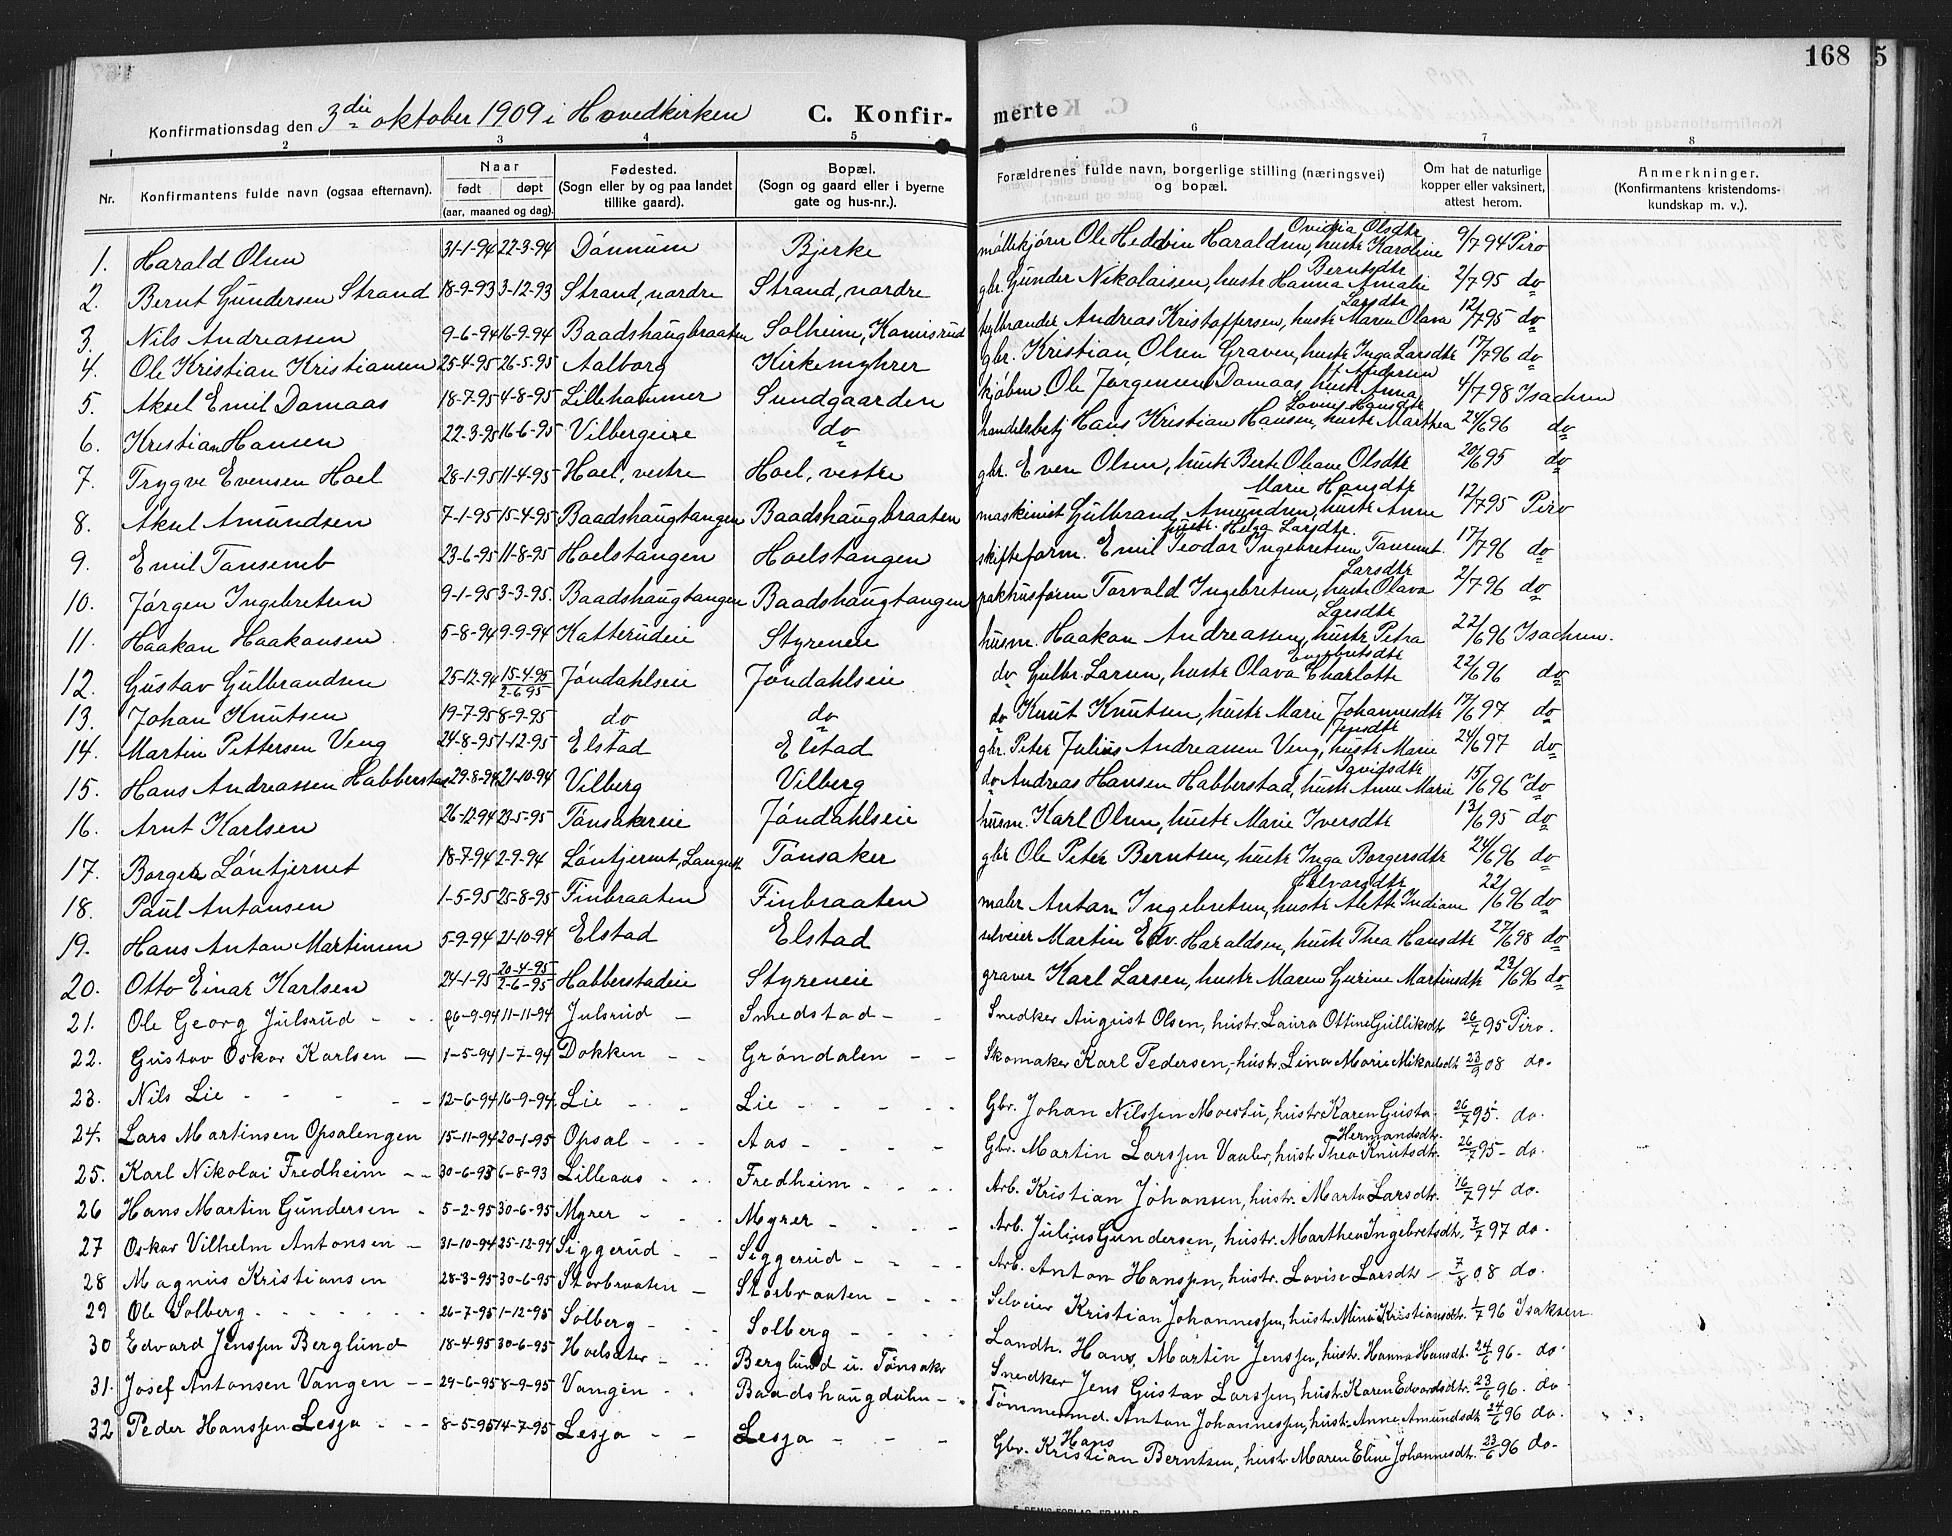 168 5
Konfirmationsdag den 3die oktober 1909 i Hovedkirken C. Konfir- merte
1 2 3 4 5 6 7 8
Nr. Konfirmantens fulde navn (ogsaa efternavn). Naar født døpt (aar, maaned og dag). Fødested. (Sogn eller by og paa landet tillike gaard). Bopæl. (Sogn og gaard eller i byerne gate og hus-nr.). Forældrenes fulde navn, borgerlige stilling (næringsvei) og bopæl. Om hat de naturlige kopper eller vaksinert, attest herom. Anmerkninger. (Konfirmantens kristendoms- kundskap m. v.).
1. Harald Olsen 31-1-94 22-3-94 Dönnum Bjerke Ole Hedvin Haraldsen, hustr Karoline Ovidia Olsdtr 9/7 94 Piro
2. Bernt Gundersen Strand 18-9-93 3-12-93 Strand, nordre Strand, nordre gbr. Gunder Nikolaisen, hustr Hanna Amalie Berntsdtr 2/7 95 do
3. Nils Andreassen 9-6-94 16-9-94 Baadshaugbraaten Solheim, Komisrud Andreas Kristoffersen, hustr Maren Olava Larsdtr 12/7 95 do
4. Ole Kristian Kristiansen 25-4-95 26-5-95 Aalborg Kirkemyhrer gbr. Kristian Olsen Graven, hustr Inga Larsdtr 17/7 96 do
5. Aksel Emil Damaas 18-7-95 4-8-95 Lillehammer Sundgaarden kjøbm. Ole Jørgensen Damaas, hustr Anna f. Andersen 4/7 98 Isachsen
6. Kristian Hansen 22-3-95 16-6-95 Vilbergeie do handelsbetj Hans Kristian Hansen, hustr Marthea Lovise Hansdtr 24/6 96 do
7. Trygve Evensen Hoel 28-1-95 11-4-95 Hoel, vestre Hoel, vestre gbr. Even Olsen, hustr Berte Oleane Olsdtr 20/6 95 do
8. Aksel Amundsen 7-1-95 15-4-95 Baadshaugtangen Baadshaugbraaten maskinist Gulbrand Amundsen, hustr Anne Marie Hansdtr 12/7 95 Piro
9. Emil Tansemb 23-6-95 11-8-95 Hoelstangen Hoelstangen skifteform. Emil Teodor Ingebretsen Tansemt. hustr. Helga Larsdtr. 17/7 96 do
10. Jørgen Ingebretsen 9-1-95 3-3-95. Baadshaugtangen Baadshaugtangen pakhusform Torvald Ingebretsen, hustr Olava Larsdtr 2/7 96 do
11. Haakon Haakonsen 5-8-94 9-9-94 Katterudeie Styreneie husm. Haakon Andreassen, hustr Petra Larsdtr 22/6 96 Isachsen.
12. Gustav Gulbrandsen 25-12-94 15-4-95 2-6 95 Jöndahlseie Jöndahlseie do Gulbr. Larsen, hustr Olava Charlotte Engebretsdtr 22/6 96 do
13. Johan Knutsen 19-7-95 8-9-95 do do do Knut Knutsen, hustr Marie Johannesdtr 17/6 97 do
14. Martin Pettersen Veng 24-8-95 1-12-95 Elstad Elstad gbr. Peter Julius Andreassen Veng, hustr Marie Jensdtr 24/6 97 do
15. Hans Andreassen Habberstad 29-8-94 21-10-94 Vilberg Vilberg do Andreas Hansen Habberstad, hustr Anne Marie Davidsdtr 15/6 96 do
16. Arnt Karlsen 26-12-94 23-5-95 Tönsakereie Jöndahlseie husm. Karl Olsen, hustr Marie Iversdtr 13/6 95 do
17. Borger Löntjernet 18-7-94 2-9-94 Löntjernet, Langset Tönsaker gbr Ole Peter Berntsen, hustr Inga Borgersdtr 24/6 96 do
18. Paul Antonsen 1-5-95 25-8-95 Finbraaten Finbraaten Anton Ingebretsen, hustr Alette Indiane Halvorsdtr 22/6 96 do
19. Hans Anton Martinsen 5-9-94 21-10-94 Elstad Elstad selveier Martin Edv. Haraldsen, hustr Thea Hansdtr 27/6 98 do
20. Otto Einar Karlsen 24-1-95 20-4-95 2-6-95 Habberstadeie Styreneie graver Karl Larsen, hustr Maren Gurine Martinsdtr 23/6 96 do
21. Ole Georg Julsrud - - 26-9-94 11-11-94 Julsrud - Smedstad - Snedker August Olsen, hustr. Laura Ottine Gulliksdtr 26/7 95 Piro.
22. Gustav Oskar Karlsen - 1-5-94 1-7-94 Dokken - - Gröndalen - - Skomaker Karl Pedersen, hustr. Lina Marie Mikaelsdtr 23/9 08 do.
23. Nils Lie - - - - - 12-6-94 16-9-94 Lie - - Lie - - - - - Gbr. Johan Nilssen Moestu, hustr Karen Gusta Hermandsdtr. 26/7 95. do.
24. Lars Martinsen Opsalengen 15-11-94 20-1-95 Opsal - - - Aas - - - - Gbr. Martin Larssen Vaaler, hustr Thea Knutsdtr. 26/7 95 - do.
25. Karl Nikolai Fredheim - - 30-6-93 6-8-93 Lilleaas - - - Fredheim - - - - Arb. Kristian Johansen, hustr. Marta Larsdtr. 16/7 94 do.
26 Hans Martin Gundersen - 5-2-95 30-6-95 Myrer - - - Myrer - - - - Arb. Julius Gundersen, hustr. Marthea Ingebretsdtr. 7/7 97 do.
27 Oskar Vilhelm Antonsen - 31-10-94 25-12-94 Siggerud - - Siggerud - - - - Arb. Anton Hanssen, hustr. Lovise Larsdtr - 7/8 08 do.
28 Magnus Kristiansen 28-3-95 30-6-95 Storbraaten - Storbraaten - - - Selveier Kristian Johannessen, hustr. Mina Kristiansdtr. 1/7 96 Isaksen
29 Ole Solberg - - - - - - 26-7-95 1-12-95 Solberg - - - Solberg - - - - Landh. Hans Martin Jenssen, hustr. Hanna Hansdt. 24/6 96 - do.
30 Edvard Jenssen Berglund 18-4-95 30-6-95 Hoelseter - - - Berglund u. Tönsaker Snedker Jens Gustav Larssen, hustr. Karen Edvardsdtr. 23/6 96. do.
31. Josef Antonsen Vangen - - 29-6-95 8-9-95 Vangen - - Baadshaugdalen - - Tömmermd. Anton Johannessen, hustr. Anne Amundsdt. 24/6 96 do.
32 Peder Hanssen Lesja - - - 8-5-95 14-7-95 Lesja - - Lesja - - - Gbr. Hans Kristian Berntsen, hustr. Maren Eline Johannesdtr. 23/6 96 do-